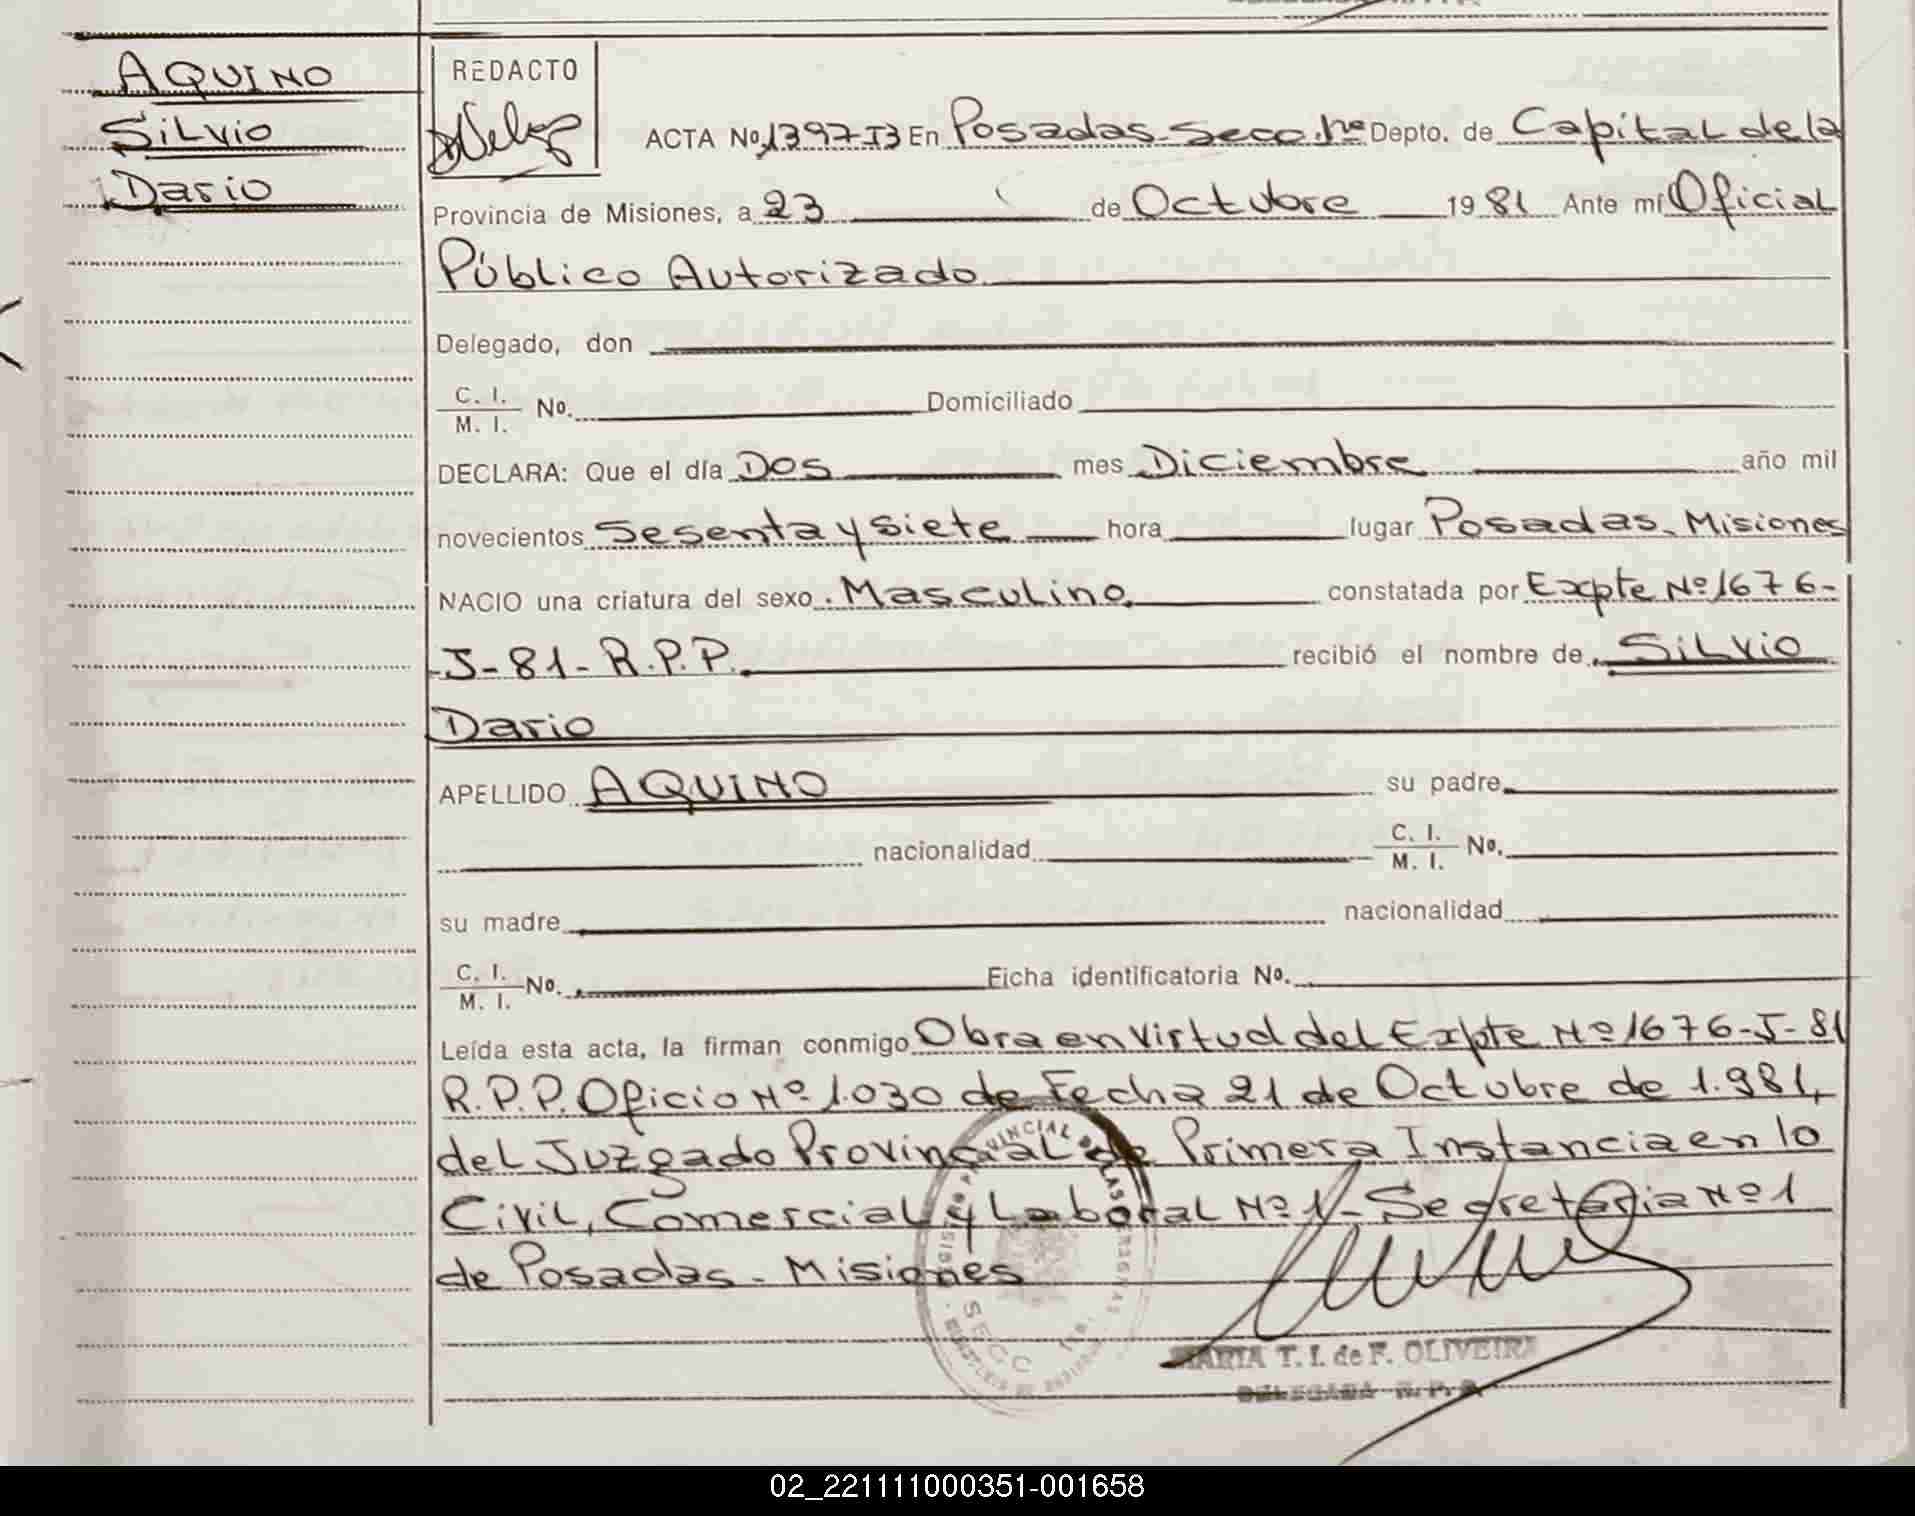 AQUINO
Silvio
Dario
REDACTO
ACTA Nº 1397-I3 En Posadas-Secc. 1ª Depto. de Capital de la
Provincia de Misiones, a 23 de Octubre 1981 Ante mí Oficial
Público Autorizado
Delegado, don
C. I.
M. I. Nº. Domiciliado
DECLARA: Que el día Dos mes Diciembre año mil
novecientos Sesenta y siete hora lugar Posadas. Misiones
NACIO una criatura del sexo. Masculino constatada por Expte Nº 1676-
-J-81-R.P.P. recibió el nombre de Silvio
Dario
APELLIDO AQUINO su padre
nacionalidad C. I.
M. I. Nº.
su madre nacionalidad
C. I.
M. I. Nº. Ficha identificatoria Nº.
Leída esta acta, la firman conmigo Obra en Virtud del Expte Nº 1676-J-81
R.P.P. Oficio Nº 1.030 de Fecha 21 de Octubre de 1.981,
del Juzgado Provincial de Primera Instancia en lo
Civil, Comercial y Laboral Nº 1 - Secretaria Nº 1
de Posadas - Misiones
MARIA T. I. de F. OLIVEIRA
DELEGADA R. P. P.
02_221111000351-001658